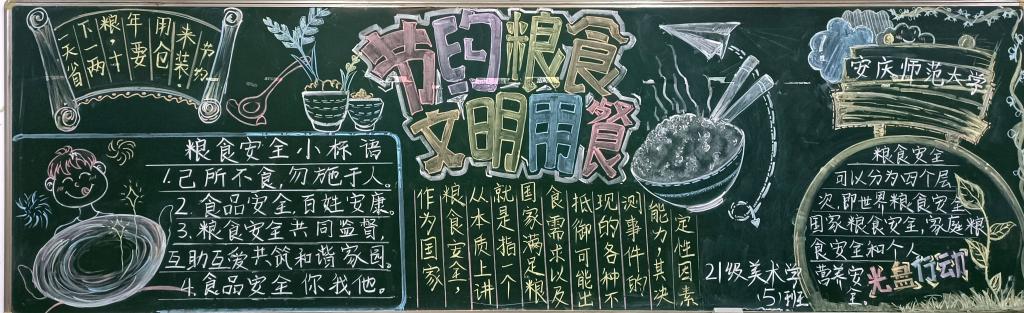 一天省
下一两
粮，十
年要
用仓
来装。
节约粮食
文明用餐
安庆师范大学
粮食安全小标语
1.己所不食，勿施于人。
2.食品安全，百姓安康。
3.粮食安全共同监督
互助互爱共筑和谐家园。
4.食品安全你我他。
作为国家
粮食安全，
从本质上讲
就是指一个
国家满足粮
食需求以及
抵御可能出
现的各种不
测事件的
能力，其决
定性因素
21级美术学
(5)班
粮食安全
可以分为四个层
次，即世界粮食安全
国家粮食安全，家庭粮
食安全和个人
营养安
全。
光盘行动